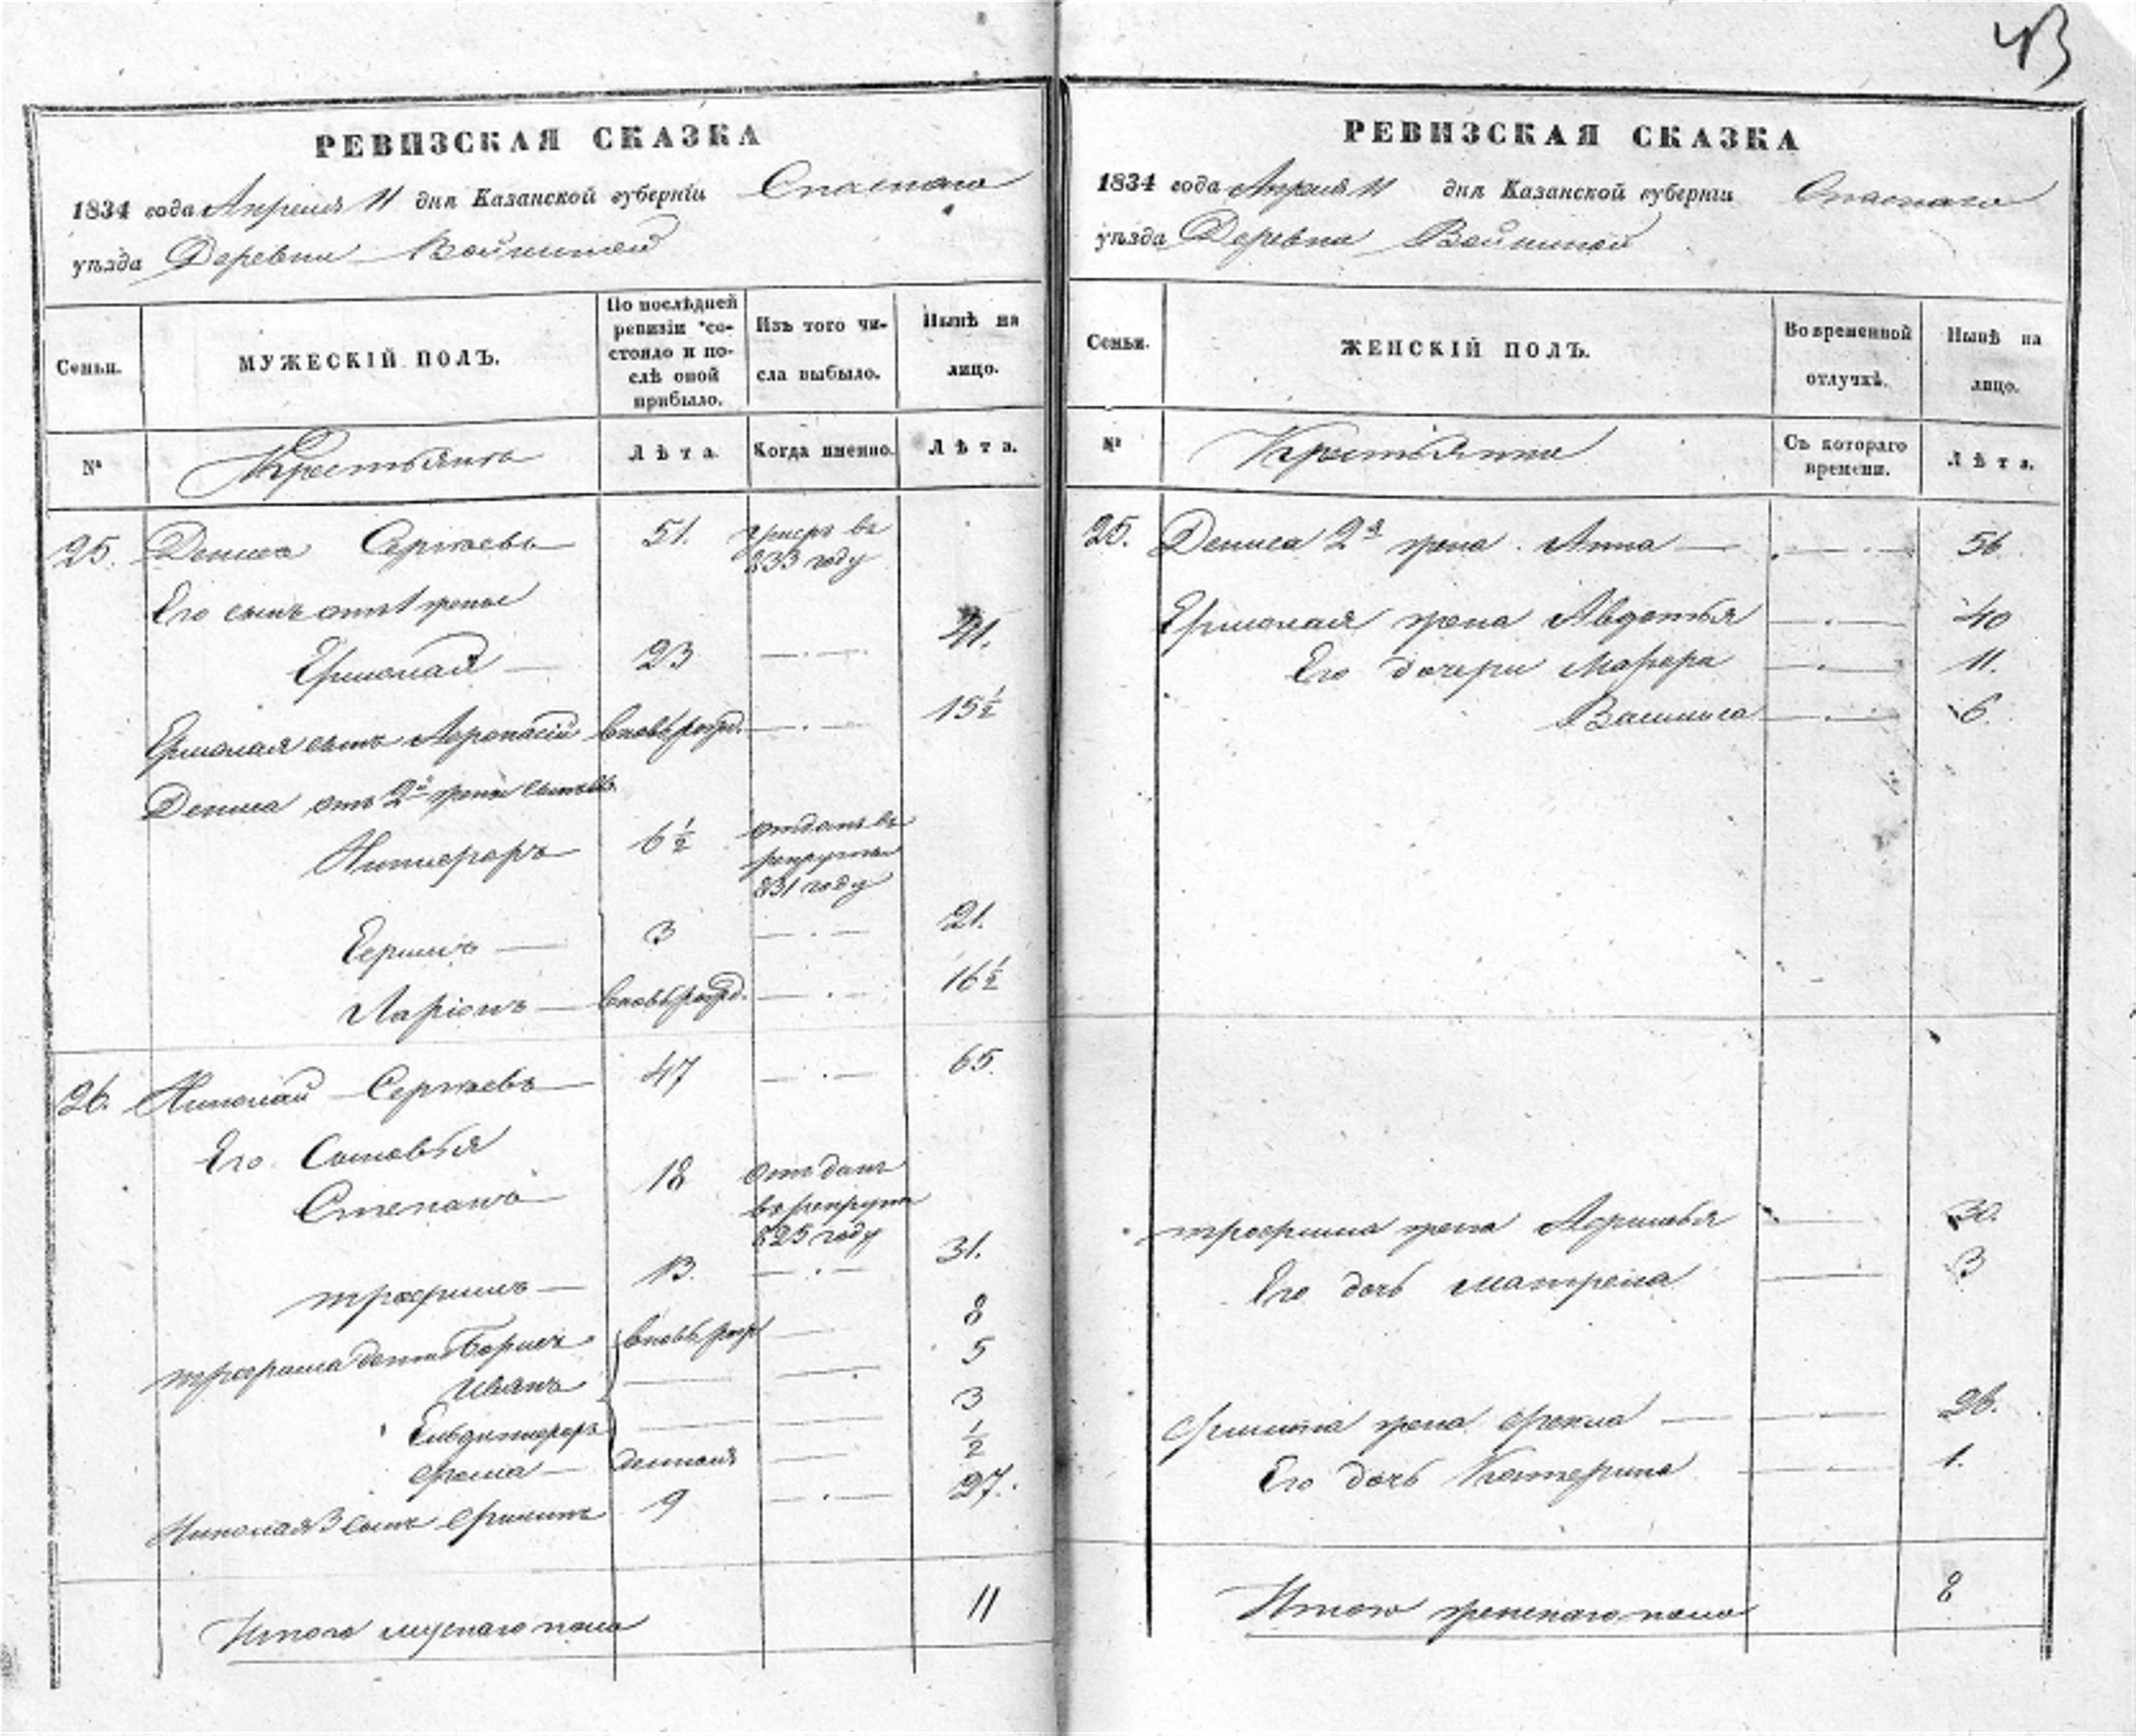 43
РЕВИЗСКАЯ СКАЗКА
1834 года Апреля 11 дня Казанской губернїи Спаскаго
уѣзда Деревни Войкиной
Семьи.
МУЖЕСКІЙ ПОЛЪ.
По послѣдней ревизіи со-
стояло и по-
слѣ оной
прибыло.
Изъ того чи-
сла выбыло.
Нынѣ на
лицо.
№
Крестьяна
Лѣта.
Когда именно.
Лѣта.
25. Дениса Сергѣевъ 51. умеръ въ
833 году
Его сынъ от 1 жены
Ермолай 23 41.
Ермолая сынъ Афонасій вновь рожд. 15½
Дениса отъ 2й жены сыновья
Никифоръ 6½ отданъ въ
рекруты
831 году
Ефимъ 3 21.
Ларіонъ вновь рожд. 16½
26. Николай Сергѣевъ 47 65.
Его Сыновья
Степанъ 18 отданъ
въ рекруты
825 году
трофимъ 13. 31.
трофима дети Борисъ вновь рож 8
Иванъ 5
3
фома ½
Николая 3 сынъ филипъ 9 27.
Итого мускаго пола 11
РЕВИЗСКАЯ СКАЗКА
1834 года Апреля 11 дня Казанской губернїи Спаскаго
уѣзда Деревни Войкиной
Семьи.
ЖЕНСКІЙ ПОЛЪ.
Во временной
отлучкѣ.
Нынѣ на
лицо.
№
Крестьянки
Съ котораго
времени.
Лѣта.
25. Дениса 2я жена Анна 56
Ермолая жена Авдотья 40
Его дочери Марфа 11.
Василиса 6.
трофима жена Афимья 30.
Его дочь матрена 3
филипа жена фекла 26.
Его дочь Катерина 1.
Итого женскаго пола 8